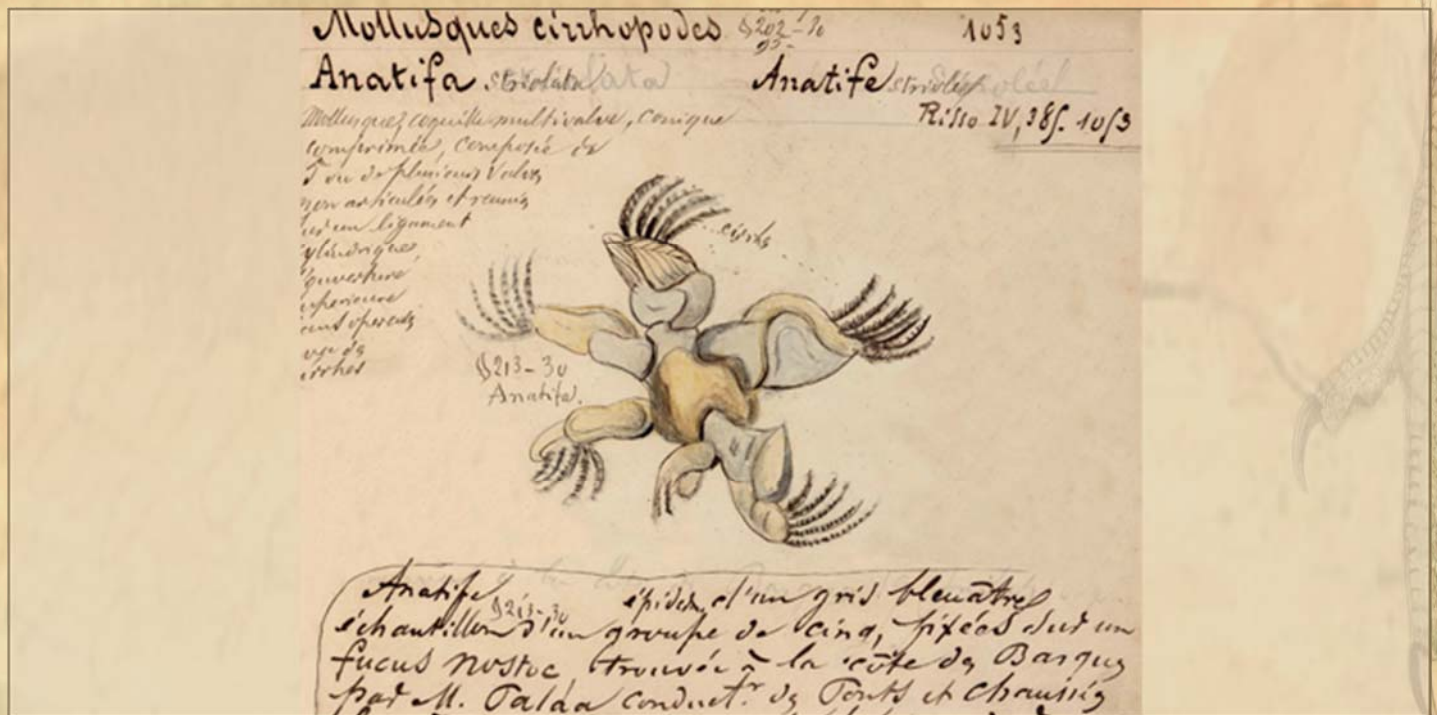 Mollusques cirrhopodes §202-30 1053
Anatifa striolata Anatife striolés
Risso IV, 385. 1053
Mollusques, coquille multivalve, conique
comprimée, composée de
5 ou de plusieurs valves
non articulées et réunies
ligament
cylindrique,
ouverture
cirrhes
§213-30
Anatifa.
Anatife §213-30 épiderm. d'un gris bleuâtre
échantillon d'un groupe de cinq, fixées sur un
fucus nostoc, trouvée à la côte de
par M. conduct.r de Ponts et chaussées